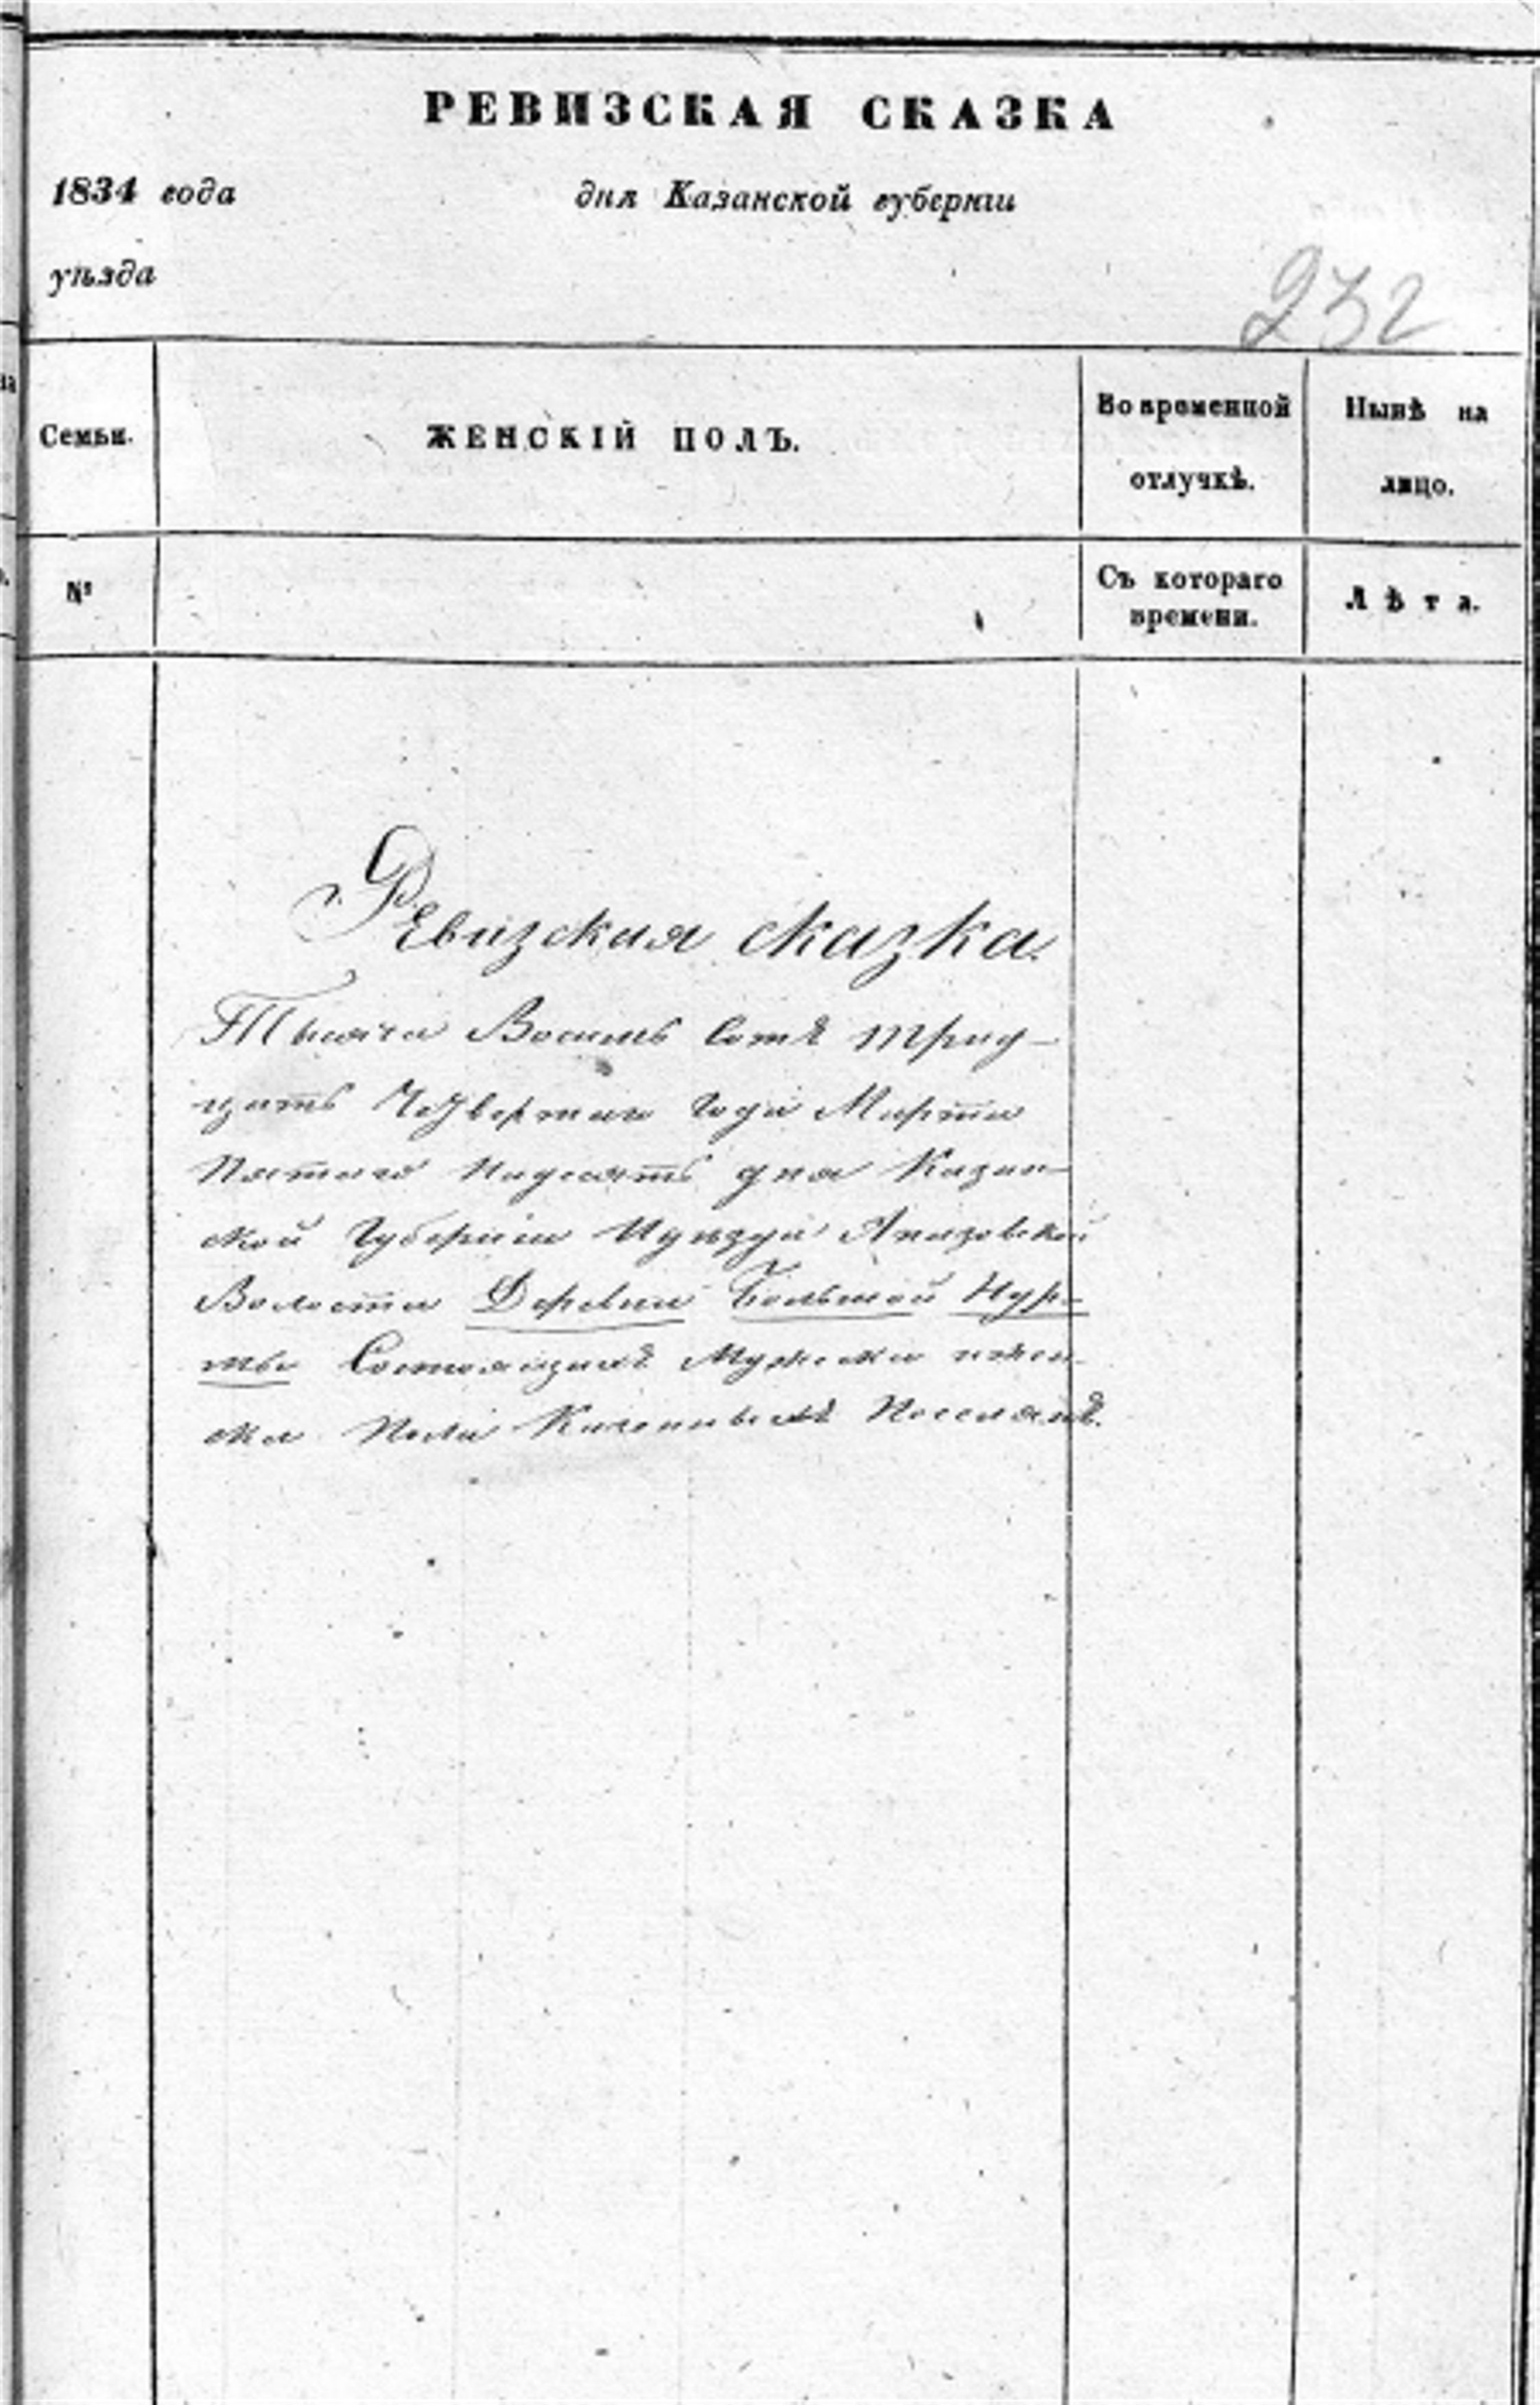 РЕВИЗСКАЯ СКАЗКА
1834 года дня Казанской губернiи
уѣзда
232
Семьи. ЖЕНСКIЙ ПОЛЪ. Во временной отлучкѣ. Нынѣ на лицо.
№ Съ котораго времени. Лѣта.
Ревизская сказка.
Тысяча Восемь Сотъ трид-
цать Четвертаго Года Марта
Пятаго Надесять дня Казан-
ской Губернiи Иуѣзда
Волости Деревни Большой Нур-
мы Состоящихъ Мужеска ижен-
ска Пола Казенныхъ Поселянъ.